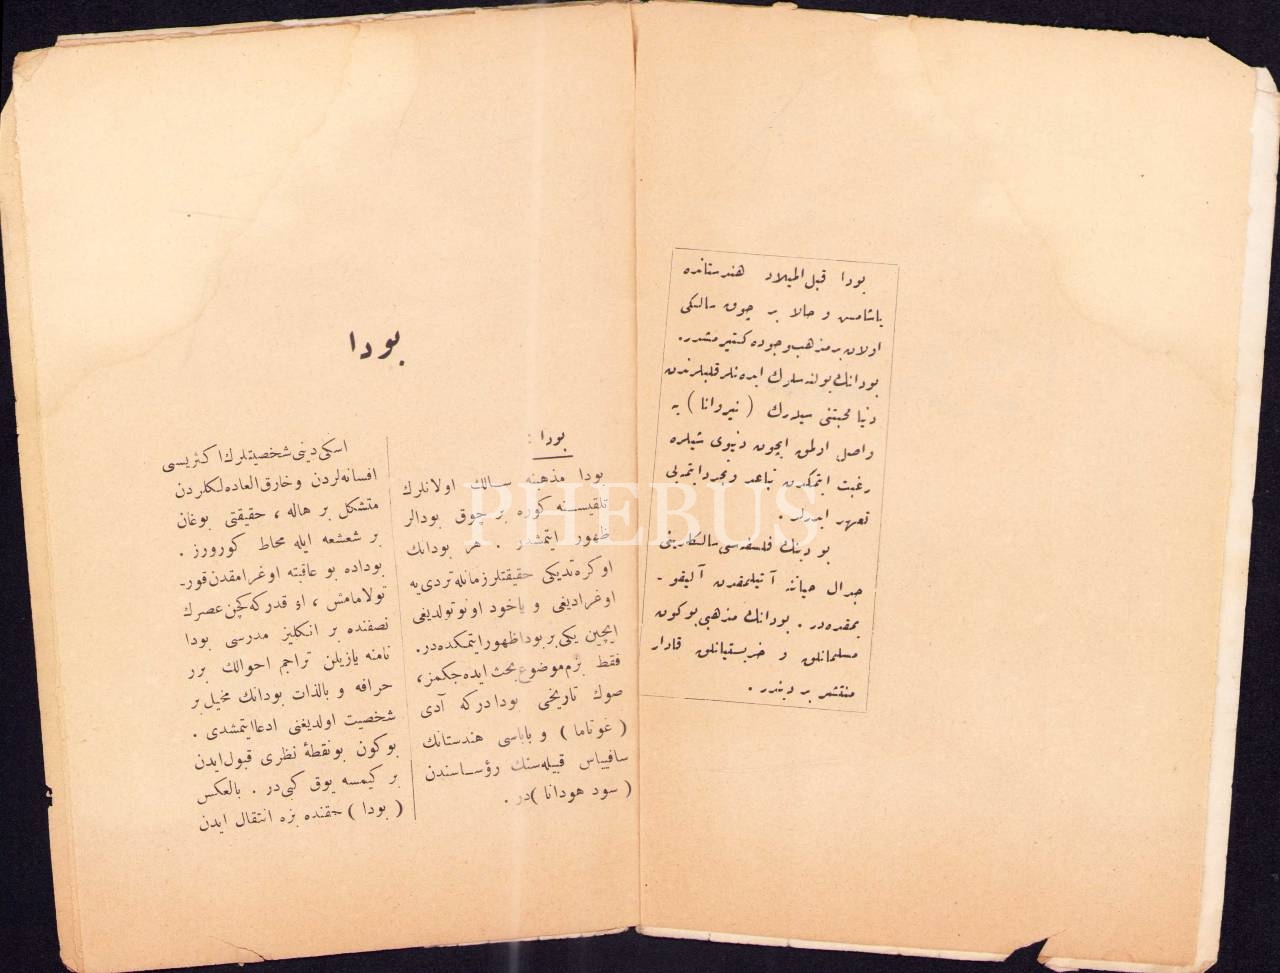 بودا قبل الميلاد هندستانده
ياشامش و حالا بر چوق سالكى
اولان بر مذهب وجوده كتيرمشدر.
بودانك يولنه سلوك ايده‌نلر قلبلرندن
دنيا محبتنى سيله‌رك (نيروانا) يه
واصل اولمق ايچون دنيوى شيلره
رغبت ايتمكدن تباعد و تجرد ايتمه‌يى
تعهد ايدرلر.
بودينك فلسفه‌سى سالكلرينى
جدال حياته آتيلمقدن آليقو-
يمقده‌در. بودانك مذهبى بوكون
مسلمانلق و خرستيانلق قادار
منتشر بر ديندر.
بودا
بودا:
بودا مذهبنه سالك اولانلرك
تلقيسنه كوره بر چوق بودالر
ظهور ايتمشدر. هر بودانك
اوكره‌تديكى حقيقتلر زمانله تردى يه
اوغراديغى و ياخود اونوتولديغى
ايچين يكى بر بودا ظهور ايتمكده‌در.
فقط بزم موضوع بحث ايده‌جكمز،
صوك تاريخى بودادركه آدى
(غوتاما) و باباسى هندستانك
ساقياس قبيله‌سنك رؤساسندن
(سود هودانا)در.
اسكى دينى شخصيتلرك اكثريسى
افسانه‌لردن و خارق العاده‌لكلردن
متشكل بر هاله، حقيقتى بوغان
بر شعشعه ايله محاط كورورز.
بوداده بو عاقبته اوغرامقدن قور-
تولامامش، او قدركه كچن عصرك
نصفنده بر انكليز مدرسى بودا
نامنه يازيلن تراجم احوالك برر
خرافه و بالذات بودانك مخيل بر
شخصيت اولديغنى ادعا ايتمشدى.
بوكون بونقطۀ نظرى قبول ايدن
بر كيمسه يوق كبى‌در. بالعكس
(بودا) حقنده بزه انتقال ايدن
PHEBUS